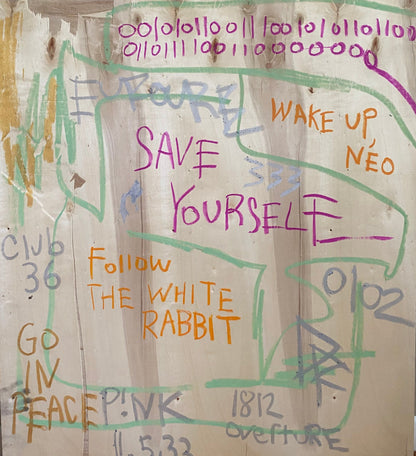 001010110011100101011011100
01101111001100000000
WAKE UP,
NEO
SAVE
YOURSELF_
333
Club
36
Follow
THE WHITE
RABBIT
0102
GO
IN
PEACE
P!NK
1812
OVERTURE
11.5.33